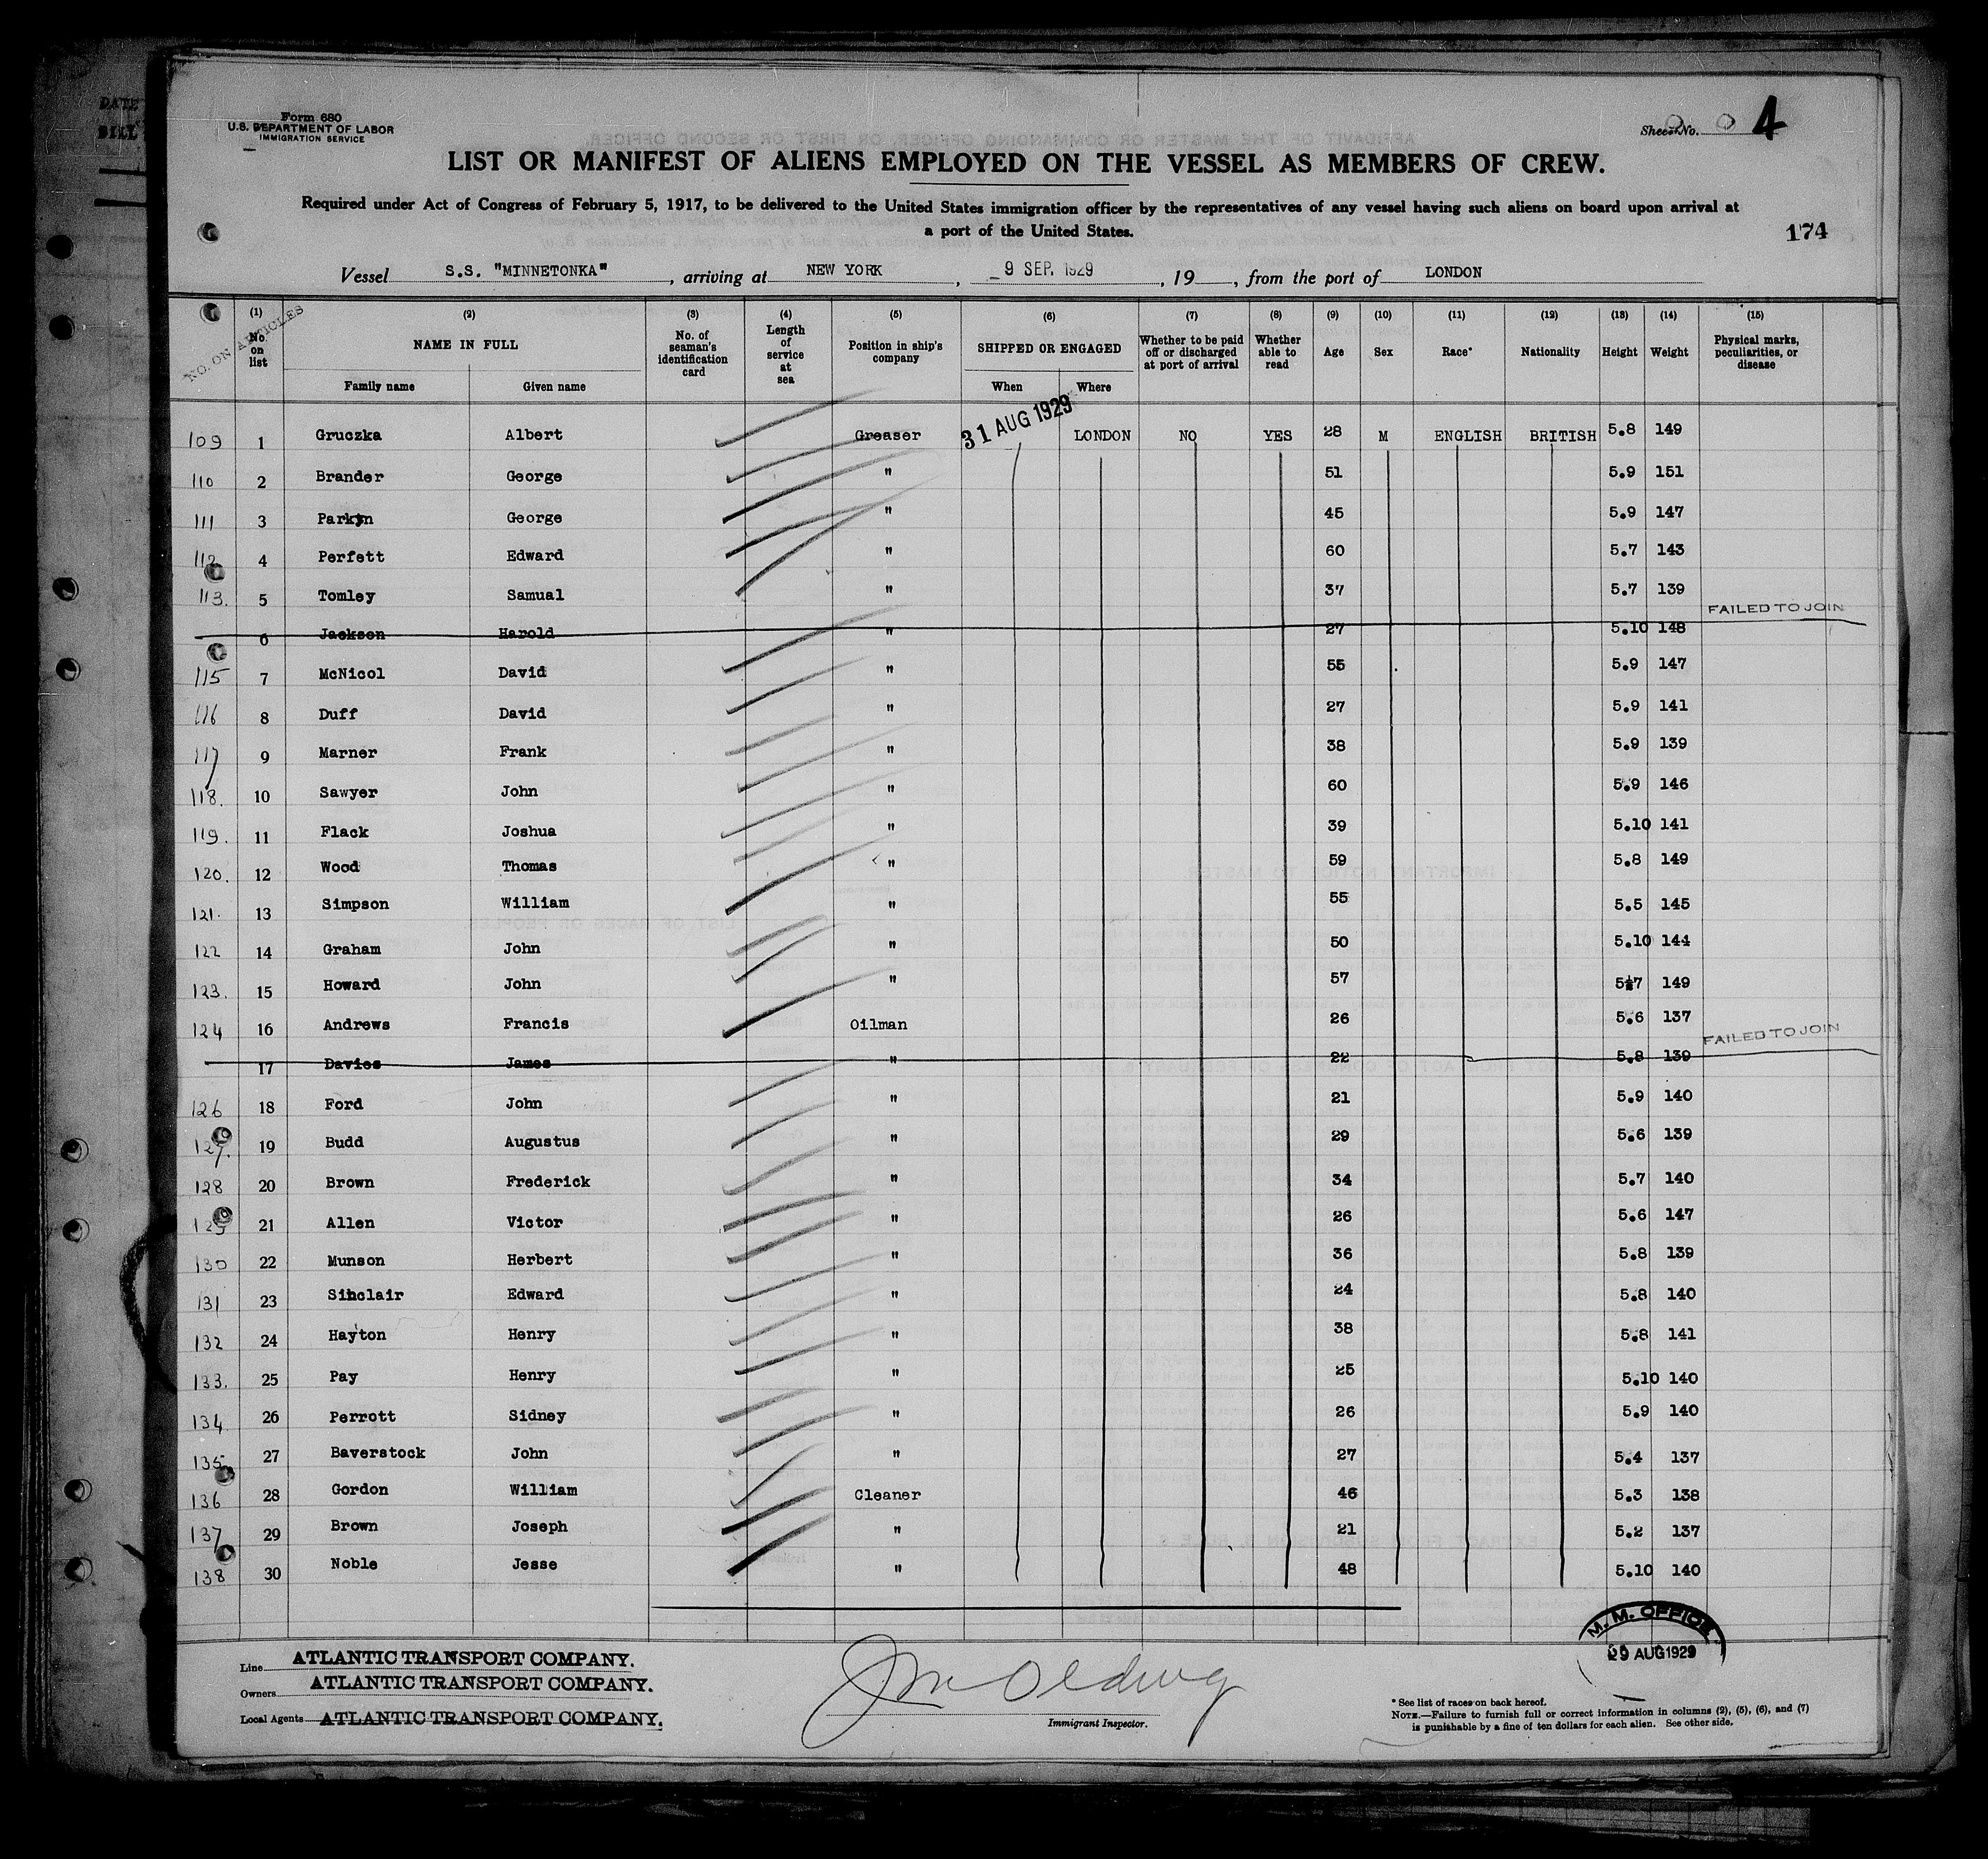 Form 680
U.S. DEPARTMENT OF LABOR
IMMIGRATION SERVICE
Sheet No. 4
LIST OR MANIFEST OF ALIENS EMPLOYED ON THE VESSEL AS MEMBERS OF CREW.
Required under Act of Congress of February 5, 1917, to be delivered to the United States immigration officer by the representatives of any vessel having such aliens on board upon arrival at
a port of the United States.
174
Vessel S.S. "MINNETONKA", arriving at NEW YORK, 9 SEP. 1929, 19, from the port of LONDON
NO. ON ARTICLES
(1) No. on list
(2) NAME IN FULL Family name Given name
(3) No. of seaman's identification card
(4) Length of service at sea
(5) Position in ship's company
(6) SHIPPED OR ENGAGED When Where
(7) Whether to be paid off or discharged at port of arrival
(8) Whether able to read
(9) Age
(10) Sex
(11) Race*
(12) Nationality
(13) Height
(14) Weight
(15) Physical marks, peculiarities, or disease
109 1 Gruczka Albert Greaser 31 AUG 1929 LONDON NO YES 28 M ENGLISH BRITISH 5.8 149
110 2 Brander George " 51 5.9 151
111 3 Parkyn George " 45 5.9 147
112 4 Perfett Edward " 60 5.7 143
113. 5 Tomley Samual " 37 5.7 139
6 Jackson Harold " 27 5.10 148 FAILED TO JOIN
115 7 McNicol David " 55 5.9 147
116 8 Duff David " 27 5.9 141
117 9 Marner Frank " 38 5.9 139
118. 10 Sawyer John " 60 5.9 146
119. 11 Flack Joshua " 39 5.10 141
120. 12 Wood Thomas " 59 5.8 149
121. 13 Simpson William " 55 5.5 145
122 14 Graham John " 50 5.10 144
123. 15 Howard John " 57 149
124 16 Andrews Francis Oilman 26 5.6 137
17 Davies James " 22 5.8 139 FAILED TO JOIN
126 18 Ford John " 21 5.9 140
127. 19 Budd Augustus " 29 5.6 139
128 20 Brown Frederick " 34 5.7 140
129 21 Allen Victor " 26 5.6 147
130 22 Munson Herbert " 36 5.8 139
131 23 Sinclair Edward " 24 5.8 140
132 24 Hayton Henry " 38 5.8 141
133. 25 Pay Henry " 25 5.10 140
134 26 Perrott Sidney " 26 5.9 140
135 27 Baverstock John " 27 5.4 137
136 28 Gordon William Cleaner 46 5.3 138
137 29 Brown Joseph " 21 5.2 137
138 30 Noble Jesse " 48 5.10 140
Line ATLANTIC TRANSPORT COMPANY.
Owners ATLANTIC TRANSPORT COMPANY.
Local Agents ATLANTIC TRANSPORT COMPANY.
Immigrant Inspector.
M. M. OFFICE
29 AUG 1929
* See list of races on back hereof.
NOTE.—Failure to furnish full or correct information in columns (2), (5), (6), and (7)
is punishable by a fine of ten dollars for each alien. See other side.